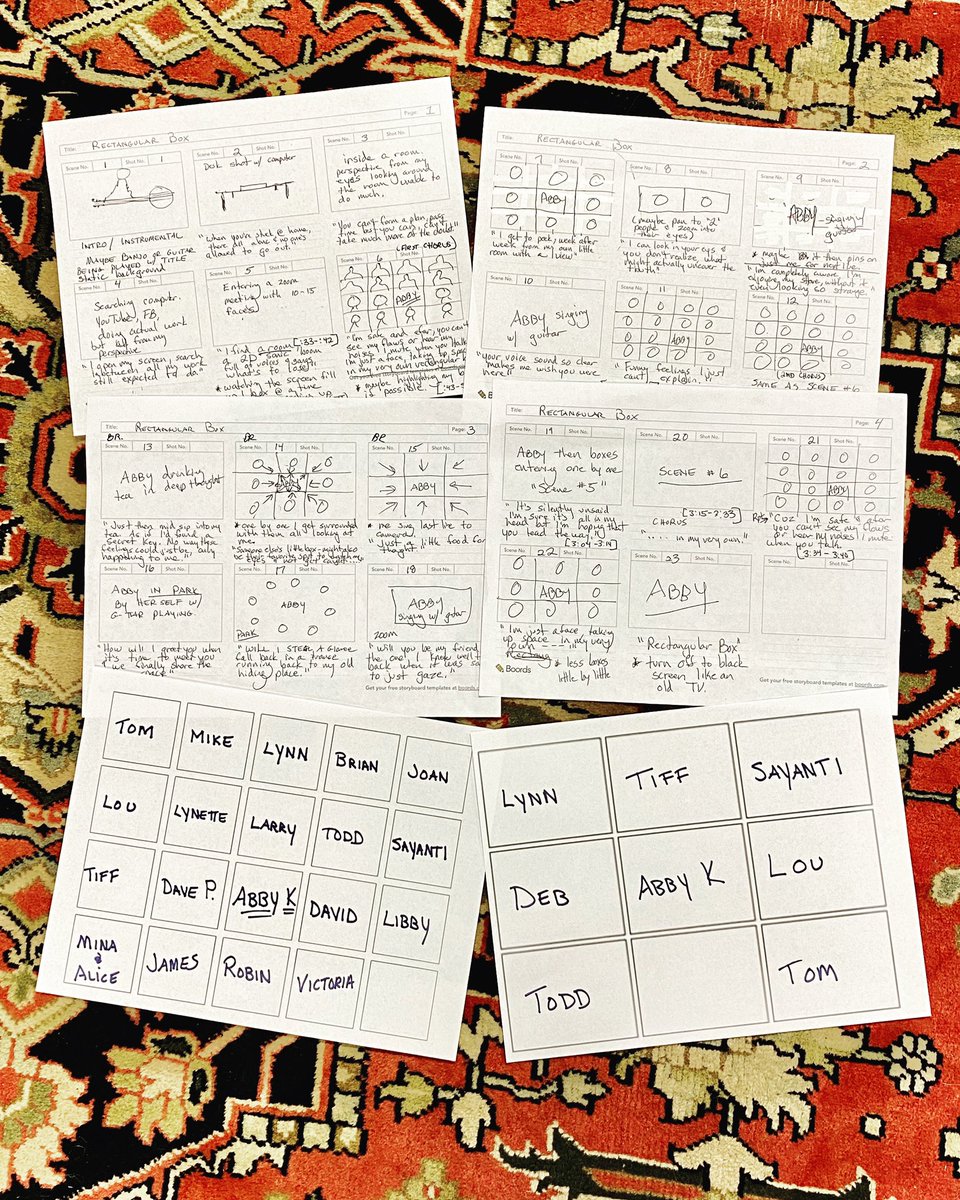 Title: RECTANGULAR BOX Page: 1
Scene No. 1 Shot No. 1
INTRO / INSTRUMENTAL
MAYBE BANJO OR GUITAR
BEING PLAYED W/ TITLE
static background
Scene No. 2 Shot No.
Desk shot w/ computer
"When you're stuck @ home,
there all alone & no one's
allowed to go out."
Scene No. 3 Shot No.
inside a room.
perspective from my
eyes looking around
the room unable to
do much.
"You can't form a plan, pass
time best you can, can't
take much more of the doubt"
Scene No. 4 Shot No.
Searching computer.
YouTube, FB,
doing actual work
but all from my
perspective.
"I open my screen, I search
in between all my work
still expected to do"
Scene No. 5 Shot No.
Entering a zoom
meeting with 10-15
faces,
"I find a room [:33-:42]
a 2D sonic boom
full of voices & says
what's to lose"
*watching the screen fill
(FIRST CHORUS)
6
ABBY
"I'm safe and afar, you can't
see my flaws or hear my
noises I mute when you talk
I'm just a face, taking up space
in my very own rectangular
* maybe highlighting my
if possible.
Title: RECTANGULAR BOX Page: 2
Scene No. 7 Shot No.
ABBY
"I get to peek, week after
week from my own little
room with a view"
Scene No. 8 Shot No.
(maybe pan to "2"
people & zoom into
their eyes)
"I can look in your eyes &
you don't realize, what
might actually uncover the
truth"
Scene No. 9 Shot No.
ABBY singing w/
guitar
* maybe it then pins on
just me for next line.
"I'm completely aware I'm
enjoying my stare, without it
even looking so strange."
Scene No. 10 Shot No.
ABBY singing
w/ guitar
"your voice sound so clear
makes me wish you were
here"
Scene No. 11 Shot No.
ABBY
"Funny feelings I just
can't explain."
Scene No. 12 Shot No.
ABBY
(2ND CHORUS)
SAME AS SCENE #6
Boords
Title: RECTANGULAR BOX Page: 3
BR.
Scene No. 13 Shot No.
ABBY drinking
tea in deep thought
"Just then mid sip into my
tea. As if I'd found a
secret key. No way these
feelings could just be, only
happening to me."
BR
Scene No. 14 Shot No.
ABBY
* one by one I get surrounded
with them all looking at
me
BR
Scene No. 15 Shot No.
ABBY
* me sing last line to
camera.
"Just a little food for
thought."
Scene No. 16 Shot No.
ABBY IN PARK
BY HERSELF W/
G-TAR PLAYING.
"How will I greet you when
it's time to meet you
& we finally share the
Scene No. 17 Shot No.
ABBY
PARK
"WILL I STEAL A GLANCE
fall back in a trance
running back to my old
hiding place."
Scene No. 18 Shot No.
ABBY
singing w/ guitar
ZOOM
"Will you be my friend
the one I knew well
back when it was safe
to just gaze."
Get your free storyboard templates at boords.com
Title: RECTANGULAR BOX Page: 4
Scene No. 19 Shot No.
ABBY then boxes
entering one by one
"Scene #5"
"It's silently unsaid
I'm sure it's all in my
head but I'm hoping that
you lead the way."
[3:04-3:14]
Scene No. 20 Shot No.
SCENE #6
CHORUS [3:15-3:33]
"..... in my very own."
Scene No. 21 Shot No.
ABBY
"Cuz I'm safe & afar
you can't see my flaws
or hear my noises I mute
when you talk
Scene No. 22 Shot No.
ABBY
"I'm just a face, taking
up space in my very
own
* less boxes
little by little
Scene No. 23 Shot No.
ABBY
"Rectangular Box"
* turn off to black
screen like an
old TV.
Scene No. Shot No.
Boords
Get your free storyboard templates at boords.com
TOM MIKE LYNN BRIAN JOAN
LOU LYNETTE LARRY TODD SAYANTI
TIFF DAVE P. ABBY K DAVID LIBBY
MINA & ALICE JAMES ROBIN VICTORIA
LYNN TIFF SAYANTI
DEB ABBY K LOU
TODD TOM